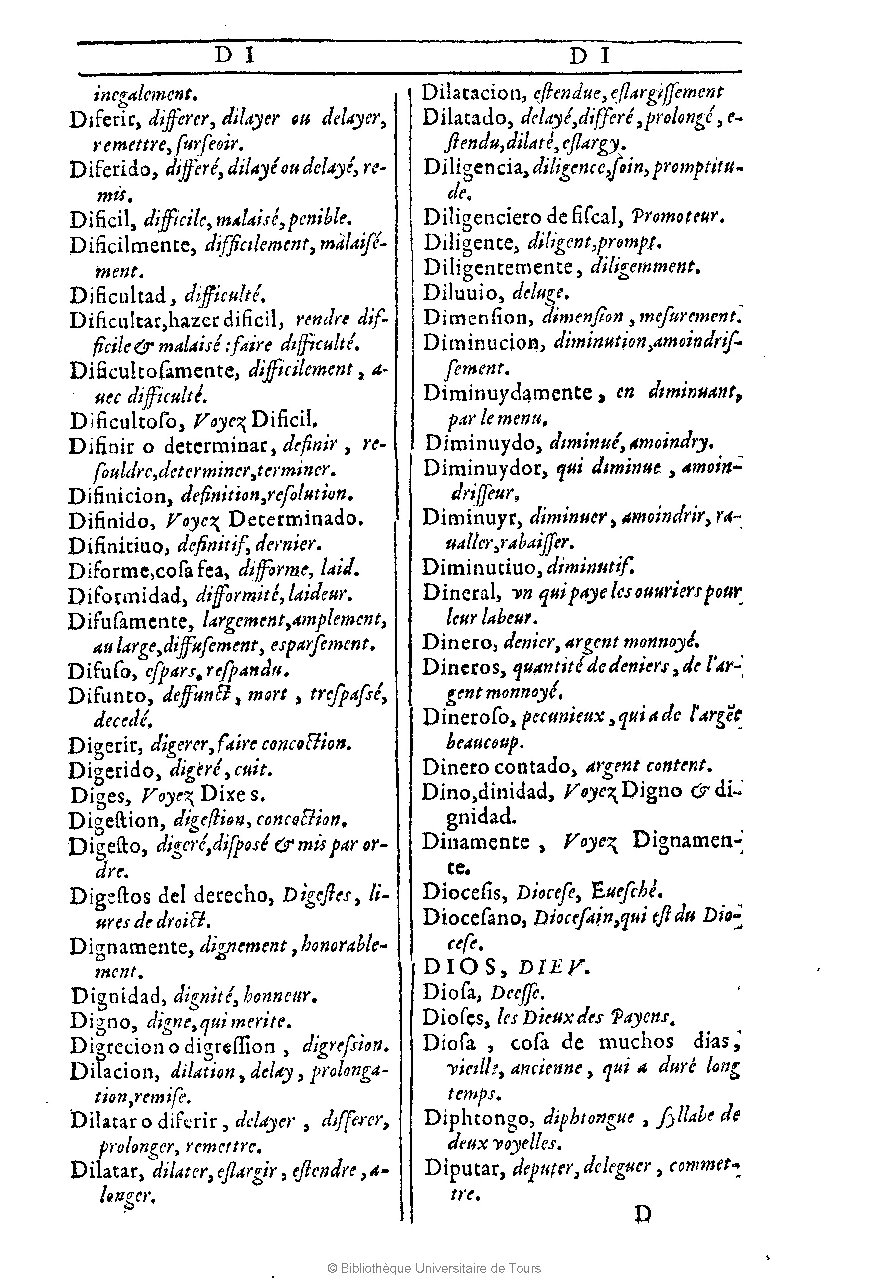 D I
D I
inegalement.
Diferir, differer, dilayer ou delayer,
remettre, surseoir.
Diferido, differé, dilayé ou delayé, re-
mis.
Dificil, difficile, malaisé, penible.
Dificilmente, difficilement, malaisé-
ment.
Dificultad, difficulté.
Dificultar, hazer dificil, rendre dif-
ficile & malaisé : faire difficulté.
Dificultoſamente, difficilement, a-
uec difficulté.
Dificultoſo, Voyez Dificil.
Difinir o determinar, definir, re-
ſouldre, determiner, terminer.
Difinicion, definition, reſolution.
Difinido, Voyez Determinado.
Difinitiuo, definitif, dernier.
Diforme, coſa fea, difforme, laid.
Diformidad, difformité, laideur.
Difuſamente, largement, amplement,
au large, diffuſement, esparſement.
Difuſo, eſpars, reſpandu.
Difunto, deffunct, mort, treſpaſsé,
decedé.
Digerir, digerer, faire concoction.
Digerido, digeré, cuit.
Diges, Voyez Dixes.
Digeſtion, digeſtion, concoction.
Digeſto, digeré, diſpoſé & mis par or-
dre.
Digeſtos del derecho, Digeſtes, li-
ures de droict.
Dignamente, dignement, honorable-
ment.
Dignidad, dignité, honneur.
Digno, digne, qui merite.
Digrecion o digreſſion, digreſsion.
Dilacion, dilation, delay, prolonga-
tion, remiſe.
Dilatar o diferir, delayer, differer,
prolonger, remettre.
Dilatar, dilater, eſlargir, eſtendre, a-
longer.
Dilatacion, eſtendue, eſlargiſſement
Dilatado, delayé, differé, prolongé, e-
ſtendu, dilaté, eſlargy.
Diligencia, diligence, ſoin, promptitu-
de.
Diligenciero de fiſcal, Promoteur.
Diligente, diligent, prompt.
Diligentemente, diligemment.
Diluuio, deluge.
Dimenſion, dimenſion, meſurement.
Diminucion, diminution, amoindriſ-
ſement.
Diminuydamente, en diminuant,
par le menu.
Diminuydo, diminué, amoindry.
Diminuydor, qui diminue, amoin-
driſſeur.
Diminuyr, diminuer, amoindrir, ra-
ualler, rabaiſſer.
Diminutiuo, diminutif.
Dineral, vn qui paye les ouuriers pour
leur labeur.
Dinero, denier, argent monnoyé.
Dineros, quantité de deniers, de l'ar-
gent monnoyé.
Dineroſo, pecunieux, qui a de l'argẽt
beaucoup.
Dinero contado, argent content.
Dino, dinidad, Voyez Digno & di-
gnidad.
Dinamente, Voyez Dignamen-
te.
Dioceſis, Dioceſe, Eueſché.
Dioceſano, Dioceſain, qui eſt du Dio-
ceſe.
DIOS, DIEV.
Dioſa, Deeſſe.
Dioſes, les Dieux des Payens.
Dioſa, coſa de muchos dias,
vieille, ancienne, qui a duré long
temps.
Diphtongo, diphtongue, ſyllabe de
deux voyelles.
Diputar, deputer, deleguer, commet-
tre.
D
© Bibliothèque Universitaire de Tours